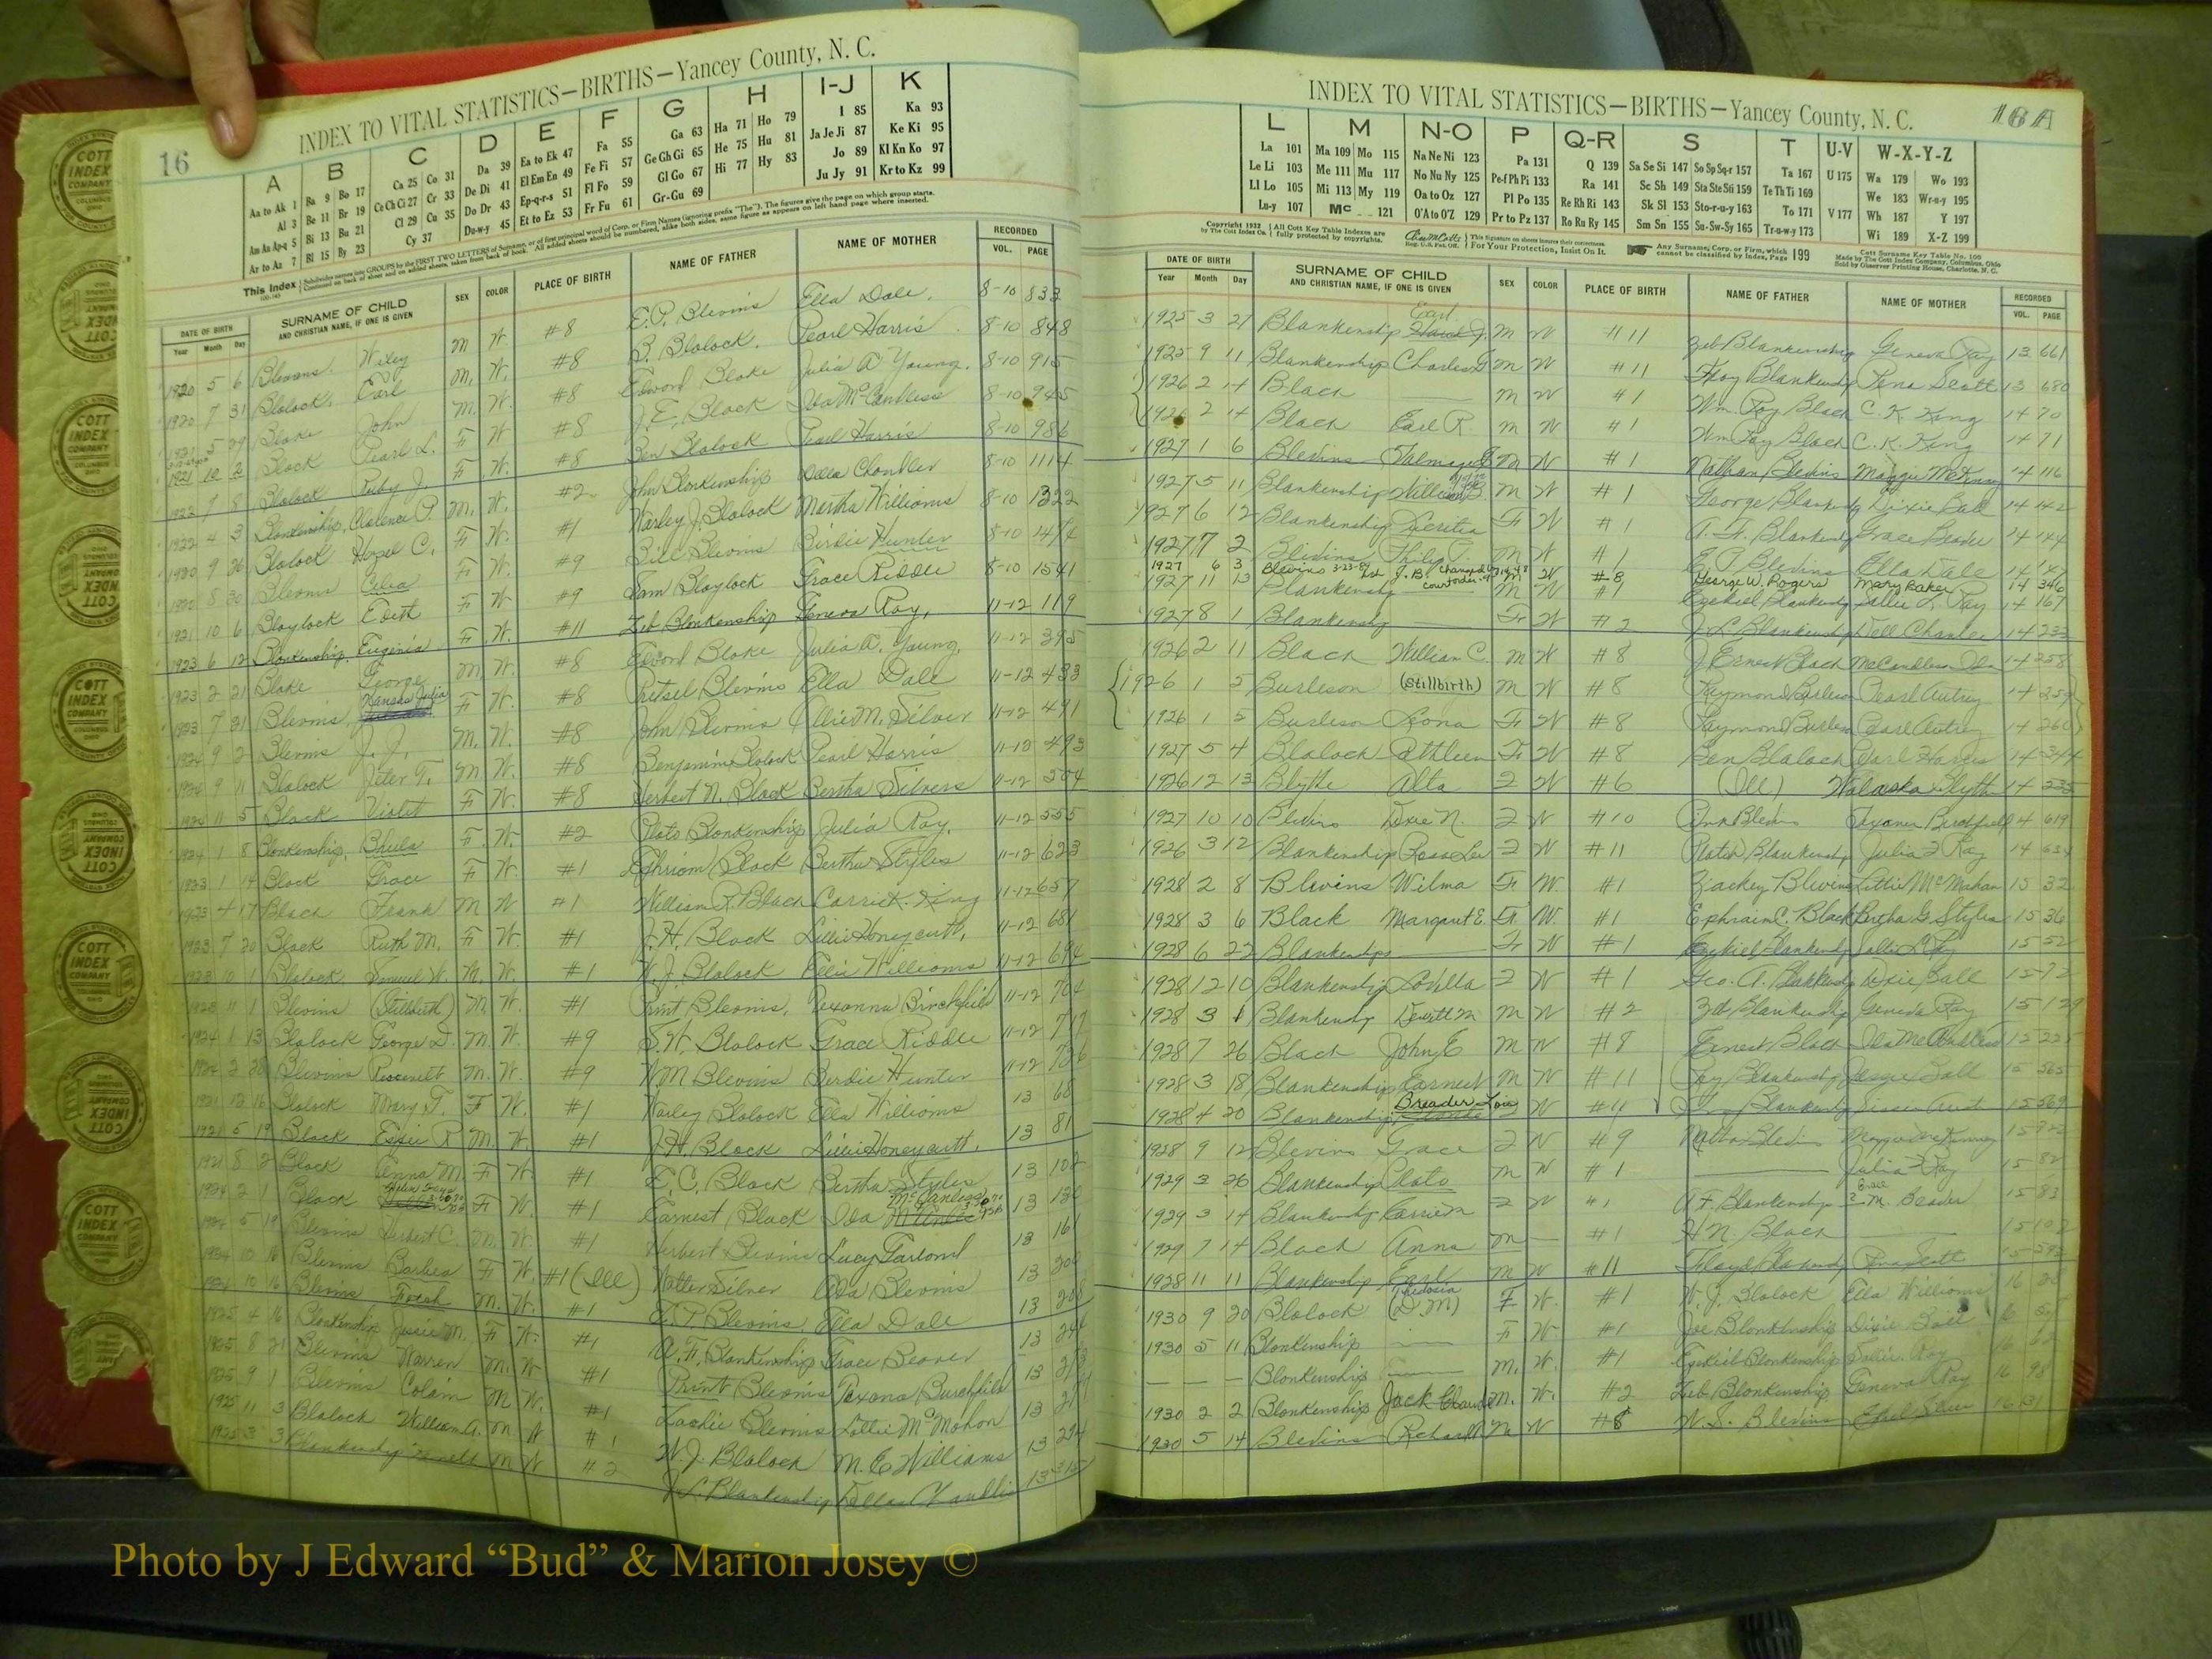 16
INDEX TO VITAL STATISTICS—BIRTHS—Yancey County, N. C.
A B C D E F G H I-J K
Aa to Ak 1 Ba 9 Bo 17 Ca 25 Co 31 Da 39 Ea to Ek 47 Fa 55 Ga 63 Ha 71 Ho 79 I 85 Ka 93
Al 3 Be 11 Br 19 Ce Ch Ci 27 Cr 33 De Di 41 El Em En 49 Fe Fi 57 Ge Gh Gi 65 He 75 Hu 81 Ja Je Ji 87 Ke Ki 95
Am An Ap-q 5 Bi 13 Bu 21 Cl 29 Cu 35 Do Dr 43 Ep-q-r-s 51 Fl Fo 59 Gl Go 67 Hi 77 Hy 83 Jo 89 Kl Kn Ko 97
Ar to Az 7 Bl 15 By 23 Cy 37 Du-w-y 45 Et to Ez 53 Fr Fu 61 Gr-Gu 69 Ju Jy 91 Kr to Kz 99
DATE OF BIRTH SURNAME OF CHILD SEX COLOR PLACE OF BIRTH NAME OF FATHER NAME OF MOTHER RECORDED
Year Month Day AND CHRISTIAN NAME, IF ONE IS GIVEN VOL. PAGE
1920 5 6 Blevins, Wiley M W. #8 E.P. Blevins Ella Dale, 8-10 833
1920 7 31 Blalock, Earl M. W. #8 B. Blalock. Pearl Harris 8-10 848
Blake John M. W. #8 Edword Blake Julia A Young. 8-10 915
1921 10 2 Black Pearl L. F W #8 J. E. Black Ida McCandless 8-10 945
1922 7 8 Blalock Ruby J. F. W. #8 Ben Blalock Pearl Harris 8-10 986
1922 4 3 Blankenship, Clarence P. M. W. #2 John Blankenship Della Chandler 8-10 1114
1920 9 26 Blalock Hazel C. F W. #1 Warley J. Blalock Martha Williams 8-10 1322
Blevins Celia F W. #9 Bill Blevins Birdie Hunter 8-10 1474
1921 10 6 Blaylock Edith F W. #9 Sam Blaylock Grace Riddle 8-10 1541
1923 6 12 Blankenship, Eugenia F. W. #11 Zeb Blankenship Geneva Ray, 11-12 119
1923 2 21 Blake George M W. #8 Edword Blake Julia A. Young, 11-12 395
1923 7 21 Blevins, Kansas Julia F W. #8 Pretsel Blevins Ella Dale 11-12 433
1924 9 2 Blevins J. J. M. W. #8 John Blevins Ollie M. Silver 11-12 491
1924 9 11 Blalock Jeter T. M W. #8 Benjamin Blalock Pearl Harris 11-12 493
1924 11 5 Black Violet F W. #8 Herbert N. Black Bertha Silvers 11-12 504
1924 1 8 Blankenship, Bheula F. W. #2 Plato Blankenship Julia Ray. 11-12 555
1923 1 14 Black Grace F W. #1 Ephriom Black Bertha Styles 11-12 623
1923 4 17 Black Frank M W #1 William R. Black Carrie K. King 11-12 657
1923 7 20 Black Ruth M. F W. #1 J. H. Black Lillie Honeycutt, 11-12 681
1923 10 1 Blalock Samuel W. M. W. #1 W. J. Blalock Ella Williams 11-12 694
1923 11 1 Blevins (Stillbirth) M. W. #1 Print Blevins, Texanna Birchfield 11-12 704
1924 1 13 Blalock George D. M. W. #9 S. W. Blalock Grace Riddle 11-12 717
1924 2 28 Blevins M. W. #9 W M Blevins Berdie Hunter 11-12 726
1921 12 16 Blalock Mary T. F W. #1 Warley Blalock Ella Williams 13 68
1921 5 19 Black Essie R M. W. #1 J. H. Black Lillie Honeycutt, 13 81
1921 8 2 Black Anna M. F W. #1 E. C. Black Bertha Styles 13 102
1924 2 1 Black F W. #1 Earnest Black Ida McCanless 13 130
1924 5 19 Blevins Herbert C. M. W. #1 Herbert Blevins Lucy Garland 13 161
1924 10 16 Blevins Barbea F W. #1 (Ill) Walter Silver Ada Blevins 13 200
1924 10 16 Blevins Fresh M. W. #1 E. P Blevins Ella Dale 13 208
1925 4 16 Blankenship Jessie M. F W. #1 A. F. Blankenship Grace Beaver 13 244
1925 8 21 Blevins Warren M. W #1 Print Blevins Texana Burchfield 13
1925 9 1 Blevins Colain M W. #1 Zachie Blevins Lottie McMahon 13
1925 11 3 Blalock William A. M W #1 W. J. Blalock M. E Williams 13 294
1925 3 3 Blankenship M W #2 J. L. Blankenship Della Chandler 13 315
16 A
INDEX TO VITAL STATISTICS—BIRTHS—Yancey County, N. C.
L M N-O P Q-R S T U-V W-X-Y-Z
La 101 Ma 109 Mo 115 Na Ne Ni 123 Pa 131 Q 139 Sa Se Si 147 So Sp Sq-r 157 Ta 167 U 175 Wa 179 Wo 193
Le Li 103 Me 111 Mu 117 No Nu Ny 125 Pe-f Ph Pi 133 Ra 141 Sc Sh 149 Sta Ste Sti 159 Te Th Ti 169 We 183 Wr-u-y 195
Ll Lo 105 Mi 113 My 119 Oa to Oz 127 Pl Po 135 Re Rh Ri 143 Sk Sl 153 Sto-r-u-y 163 To 171 V 177 Wh 187 Y 197
Lu-y 107 Mc 121 O'A to O'Z 129 Pr to Pz 137 Ro Ru Ry 145 Sm Sn 155 Su-Sw-Sy 165 Tr-u-w-y 173 Wi 189 X-Z 199
Copyright 1932 by The Cott Index Co. All Cott Key Table Indexes are fully protected by copyrights. For Your Protection, Insist On It. Any Surname, Corp. or Firm, which cannot be classified by Index, Page 199
DATE OF BIRTH SURNAME OF CHILD SEX COLOR PLACE OF BIRTH NAME OF FATHER NAME OF MOTHER RECORDED
Year Month Day AND CHRISTIAN NAME, IF ONE IS GIVEN VOL. PAGE
1925 3 21 Blankenship Earl M W #11 Zeb Blankenship Geneva Ray 13 661
1925 9 11 Blankenship Charles G M W #11 Floy Blankenship Rena Scott 13 680
1926 2 14 Black M W #1 Wm. Roy Black C. K. King 14 70
1926 2 14 Black Earl R. M W #1 Wm Roy Black C. K. King 14 71
1927 1 6 Blevins Talmage M W #1 Nathan Blevins Maggie McKinney 14 116
1927 5 11 Blankenship William M W #1 George Blankenship Dixie Ball 14 142
1927 6 12 Blankenship F W #1 A. F. Blankenship Grace Beaver 14 144
1927 7 2 Blevins Philip M W #1 E P Blevins Ella Dale 14 147
1927 6 3 Blevins J. B. M W #8 George W. Rogers Mary Baker 14 346
1927 11 13 Blankenship M W #1 Ezekiel Blankenship Sallie L. Ray 14 167
1927 8 1 Blankenship F W #2 J L Blankenship Dell Chandler 14 233
1926 2 11 Black William C. M W #8 J Ernest Black McCandless Ida 14 258
1926 1 5 Burleson (Stillbirth) M W #8 Raymond Burleson Pearl Autrey 14 259
1926 1 5 Burleson Leona F W #8 Raymond Burleson Pearl Autrey 14 260
1927 5 4 Blalock Cathleen F W #8 Ben Blalock Pearl Harris 14 344
1926 12 13 Blythe Alta F W #6 (Ill) Walaska Blythe 14 535
1927 10 10 Blevins Dixie N. F W #10 Texanna Birchfield 14 619
1926 3 12 Blankenship Rosa Lee F W #11 Plato Blankenship Julia F Ray 14 634
1928 2 8 Blevins Wilma F W. #1 Zackey Blevins Littie McMahan 15 32
1928 3 6 Black Margaret E. F. W. #1 Ephraim C. Black Bertha G. Styles 15 36
1928 6 22 Blankenship F W #1 Ezekiel Blankenship Sallie L. Ray 15 52
1928 12 10 Blankenship Louella F W #1 Geo. A. Blankenship Dixie Ball 15 72
1928 3 1 Blankenship Dewitt M M W #2 Zeb Blankenship Geneva Ray 15 129
1928 7 26 Black John E M W #8 Ernest Black Ida McCandless 15 225
1928 3 18 Blankenship Earnest M W #11 Roy Blankenship Jessie Ball 15 565
1928 4 20 Blankenship Breader Loie W #11 Blankenship 15 569
1928 9 12 Blevins Grace F W #9 Blevins Maggie McKinney 15
1929 3 26 Blankenship Plato M W #1 Julia F Ray 15 82
1929 3 14 Blankenship Carrie F W #1 A F. Blankenship M. Beaver 15 83
1929 7 14 Black Anna M — #1 H N Black 15 102
1928 11 11 Blankenship Earl M W #11 Floyd Blankenship Rena Scott 15 292
1930 9 20 Blalock (D. M) F W. #1 W. J. Blalock Ella Williams 16
1930 5 11 Blankenship F W. #1 Joe Blankenship Dixie Ball 16
— — — Blankenship M. W. #1 Ezekiel Blankenship Sallie Ray 16 62
1930 2 2 Blankenship Jack Claude M. W. #2 Zeb Blankenship Geneva Ray 16 98
1930 5 14 Blevins Richard M W #8 W. S. Blevins Ethel Silver 16 131
Photo by J Edward “Bud” & Marion Josey ©